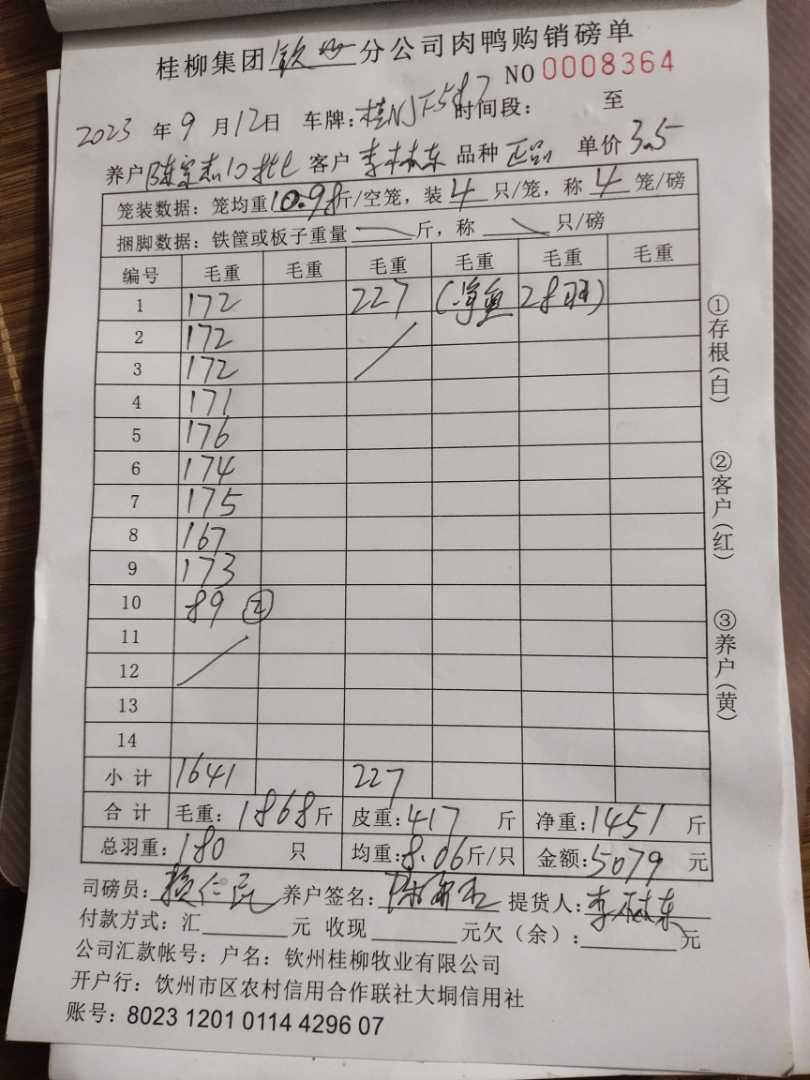 桂柳集团钦州分公司肉鸭购销磅单
NO 0008364
2023年9月12日 车牌：桂NJF587 时间段： 至
养户 陈家杰10批 客户 李林东 品种 正品 单价 3.5
笼装数据：笼均重10.98斤/空笼，装4只/笼，称4笼/磅
捆脚数据：铁筐或板子重量 斤，称 只/磅
编号 毛重 毛重 毛重 毛重 毛重 毛重
1 172 227 (净重 28羽)
2 172
3 172
4 171
5 176
6 174
7 175
8 167
9 173
10 89 ②
11
12
13
14
小计 1641 227
合计 毛重：1868斤 皮重：417斤 净重：1451斤
总羽重：180只 均重：8.06斤/只 金额：5079元
司磅员： 养户签名： 提货人：李林东
付款方式：汇 元 收现 元欠（余）： 元
公司汇款帐号：户名：钦州桂柳牧业有限公司
开户行：钦州市区农村信用合作联社大垌信用社
账号：8023 1201 0114 4296 07
①存根（白）
②客户（红）
③养户（黄）